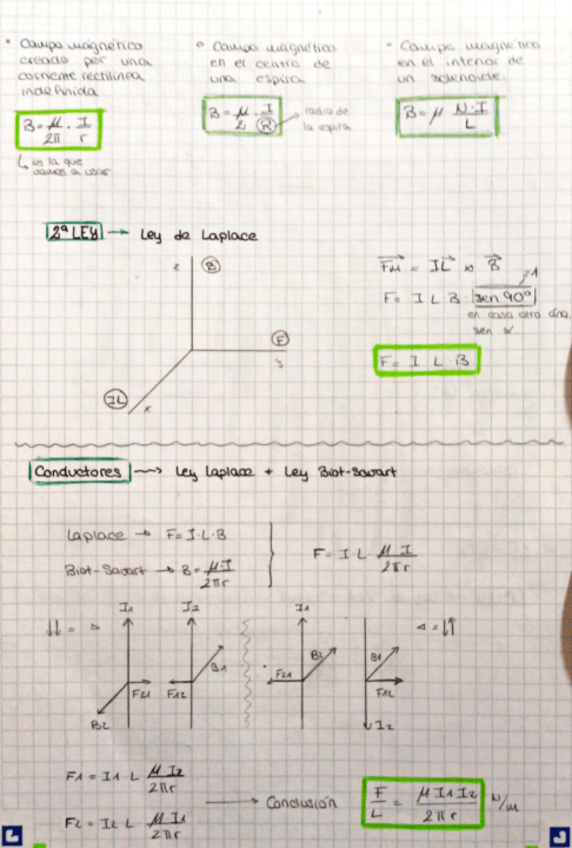 • Campo magnético
creado por una
corriente rectilínea
indefinida
B = μ/2π · I/r
↳ es la que
vamos a usar
° Campo magnético
en el centro de
una espira
B = μ/2 · I/R → radio de
la espira
" Campo magnético
en el interior de
un solenoide.
B = μ N·I/L
2ª LEY → Ley de Laplace
z B
F
y
IL x
Fm = IL x B
=1
F = I L B sen 90º
en caso otro áng.
sen α
F = I L B
Conductores → Ley Laplace + Ley Biot-Savart
Laplace → F = I·L·B
Biot-Savart → B = μ·I/2πr
F = I L · μ I/2πr
I1 I2 I1
↓↓ = ▹ ◃ = ↓↑
B1 B2 B1
F21 F12 F21 F12
B2 I2
F1 = I1 · L μ I2/2πr
F2 = I2 L μ I1/2πr
→ Conclusión
F/L = μ I1 I2/2πr N/m